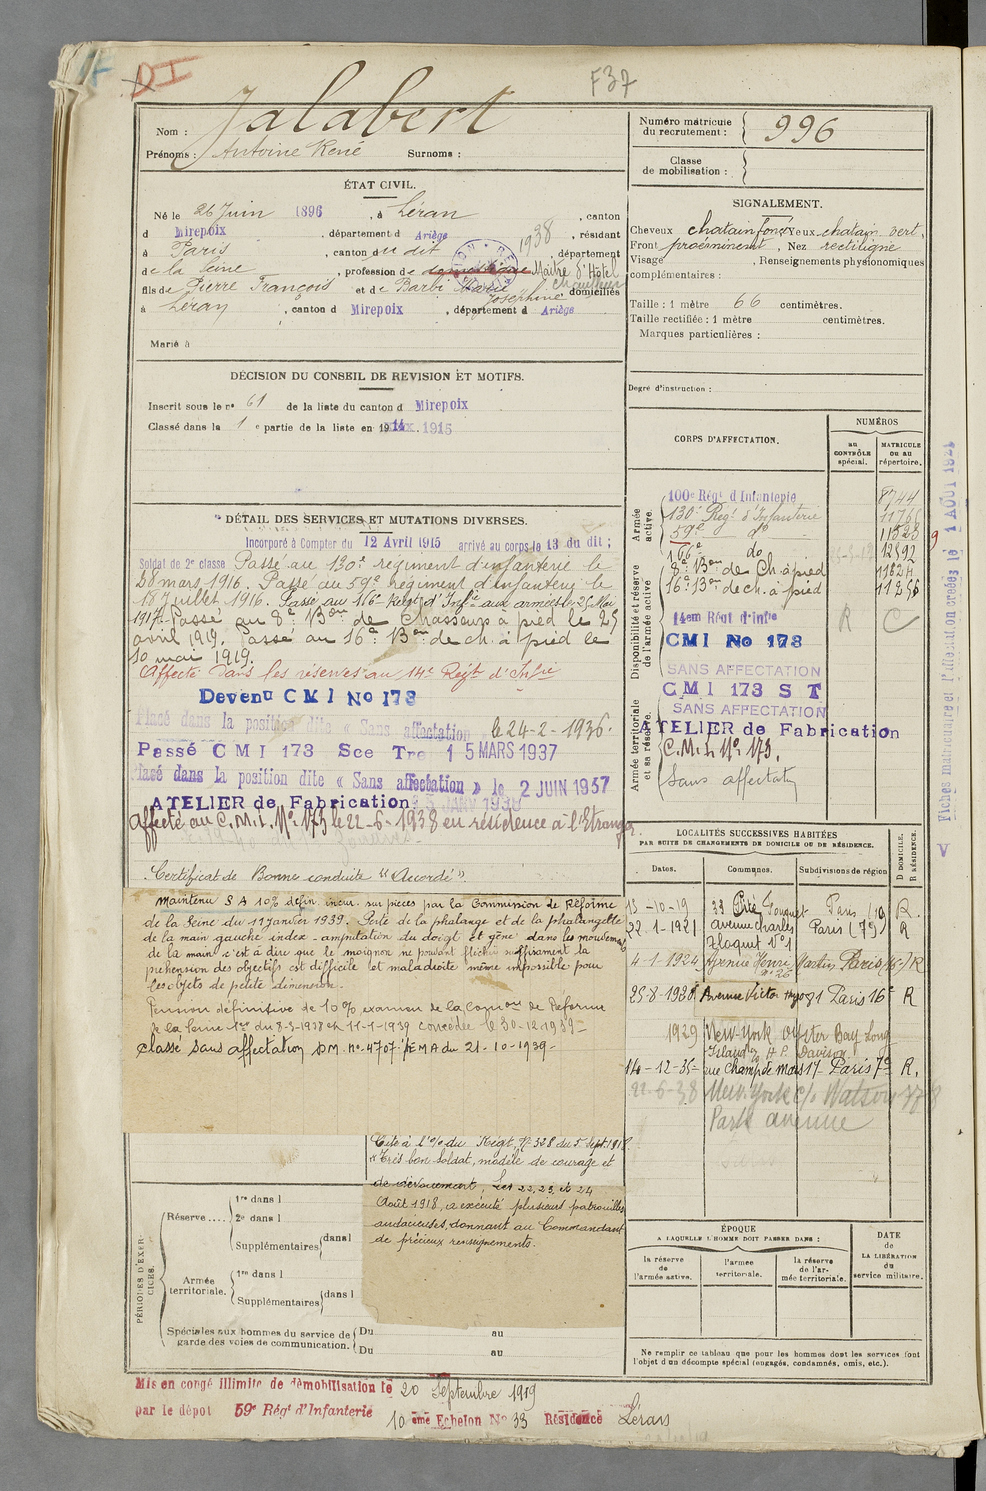 DI
F37
Nom : Jalabert
Prénoms : Antoine René Surnoms :
Numéro matricule du recrutement : 996
Classe de mobilisation :
ÉTAT CIVIL.
Né le 26 Juin 1896, à Léran, canton
d Mirepoix, département d Ariège, résidant
à Paris, canton du dit, département
de la Seine, profession de Maître d'Hôtel 1938
Chauffeur
fils de Pierre François et de Barbi Marie Joséphine domiciliés
à Léran, canton d Mirepoix, département d Ariège
Marié à
SIGNALEMENT.
Cheveux chatain foncé Yeux chatain vert,
Front proéminent, Nez rectiligne
Visage , Renseignements physionomiques
complémentaires :
Taille : 1 mètre 66 centimètres.
Taille rectifiée : 1 mètre centimètres.
Marques particulières :
Degré d'instruction :
DÉCISION DU CONSEIL DE REVISION ET MOTIFS.
Inscrit sous le n° 61 de la liste du canton d Mirepoix
Classé dans la 1e partie de la liste en 1915
DÉTAIL DES SERVICES ET MUTATIONS DIVERSES.
Incorporé à Compter du 12 Avril 1915 arrivé au corps le 13 du dit ;
Soldat de 2e classe Passé au 130e régiment d'infanterie le
28 mars 1916. Passé au 59e régiment d'infanterie le
18 Juillet 1916. Passé au 116e Regt d'Infie aux armées le 25 Mai
1917. Passé au 8e Bon de Chasseurs à pied le 25
avril 1919. Passé au 16e Bon de ch. à pied le
10 mai 1919.
Affecté dans les réserves au 14e Régt d'Infie
Devenu CMI No 173
Placé dans la position dite « Sans affectation » le 24-2-1936.
Passé CMI 173 Sce Tre 15 MARS 1937
Placé dans la position dite « Sans affectation » le 2 JUIN 1937
ATELIER de Fabrication
Affecté au C.M.I. N° 173 le 22-6-1938 en résidence à l'Etranger
Certificat de Bonne conduite "Accordé"
Maintenu S A 10% défin. incur. sur pièces par la Commission de Réforme
de la Seine du 11 janvier 1939. Perte de la phalange et de la phalangette
de la main gauche index - amputation du doigt et gêne dans les mouvements
de la main c'est à dire que le moignon ne pouvant fléchir suffisament la
préhension des objectifs est difficile et maladroite même impossible pour
les objets de petite dimension.
Pension définitive de 10% examen de la Comon de Réforme
de la Seine du 11-1-1939 concédée le 30-12-1939-
Classé sans affectation DM. no 4707/EMA du 21-10-1939-
Cité à l'O/ du Régt, N° 328 du 5 Sept. 1918
"Très bon Soldat, modèle de courage et
de dévouement, Les 22, 23, et 24
Août 1918, a exécuté plusieurs patrouilles
audacieuses, donnant au Commandant
de précieux renseignements.
CORPS D'AFFECTATION.
NUMÉROS
au CONTRÔLE spécial.
MATRICULE ou au répertoire.
Armée active.
100e Régt d'Infanterie 8744
130e Regt d'Infanterie 11766
59e do 11523
116e do 12592
8e Bon de Ch. à pied 11624
16e Bon de ch. à pied 11256
Disponibilité et réserve de l'armée active
14em Régt d'Infie R C
CMI No 173
SANS AFFECTATION
CMI 173 S T
SANS AFFECTATION
Armée territoriale et sa réserve.
ATELIER de Fabrication
C.M.I. N° 173.
Sans affectation
Fiches matriculaire et d'affectation créées le 1 AOUT 1921
V
LOCALITÉS SUCCESSIVES HABITÉES
PAR SUITE DE CHANGEMENTS DE DOMICILE OU DE RÉSIDENCE.
Dates. Communes. Subdivisions de région D DOMICILE. R RÉSIDENCE.
13-10-19 33 Cité Paris R.
22-1-1921 Avenue Charles Floquet N° 1 Paris (7e) R
4-1-1924 Avenue Henri Martin n° 26 Paris (16e) R
25-8-1928 Avenue Victor Hugo 81 Paris 16e R
1929 New-York Oyster Bay Long
Island % H P Davison
14-12-35 rue Champ de Mars 17 Paris 7e R.
22-6-38 New-York c/o Watson
Park avenue
PÉRIODES D'EXERCICES.
Réserve .... 1re dans l
2e dans l
Supplémentaires dans l
Armée territoriale. 1re dans l
Supplémentaires dans l
Spéciales aux hommes du service de garde des voies de communication. Du au
Du au
ÉPOQUE
A LAQUELLE L'HOMME DOIT PASSER DANS :
la réserve de l'armée active.
l'armée territoriale.
la réserve de l'armée territoriale.
DATE de LA LIBÉRATION du service militaire.
Ne remplir ce tableau que pour les hommes dont les services font
l'objet d'un décompte spécial (engagés, condamnés, omis, etc.).
Mis en congé illimité de démobilisation le 20 Septembre 1919
par le dépot 59e Régt d'Infanterie 10 ème Echelon No 33 Résidence Léran